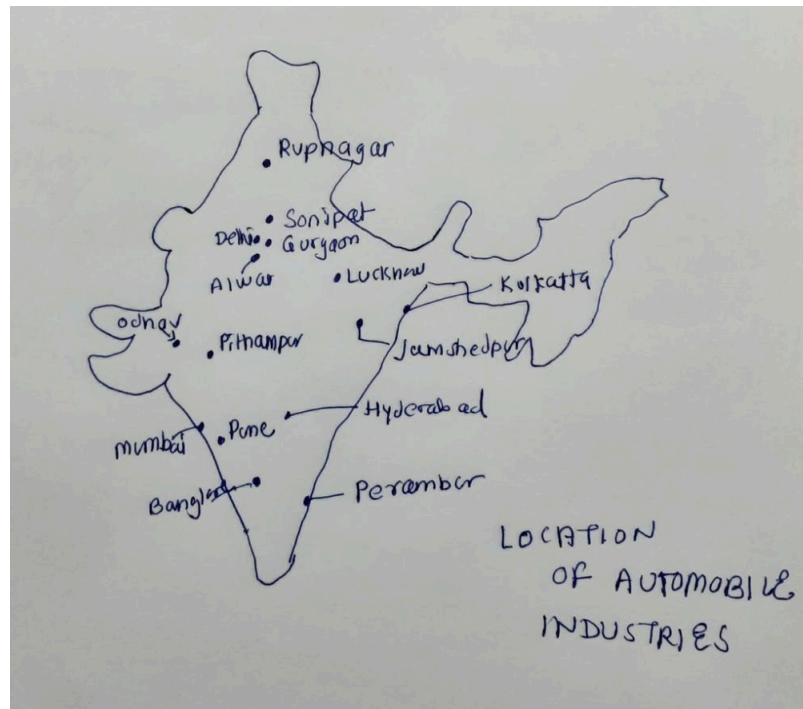 Rupnagar
Sonipat
Delhi
Gurgaon
Alwar
Lucknow
Kolkatta
odhav
Pithampur
Jamshedpur
Hyderabad
Mumbai
Pune
Banglore
Perambur
LOCATION
OF AUTOMOBILE
INDUSTRIES